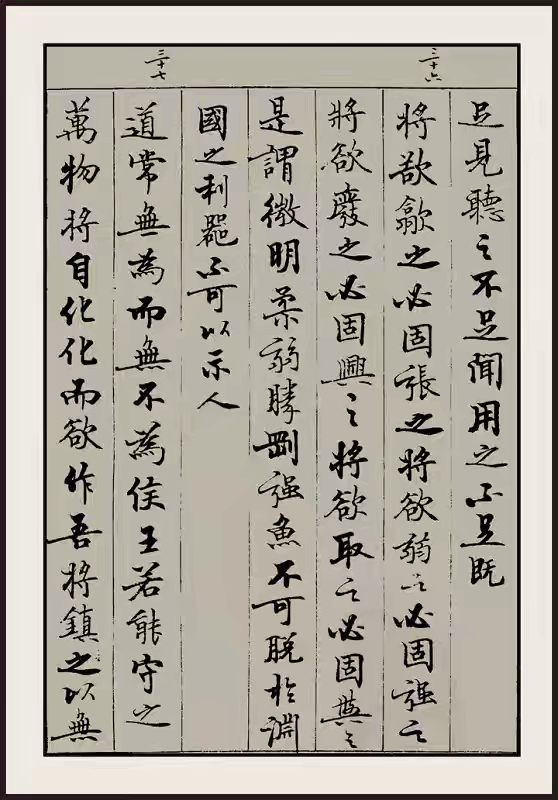 足見聽之不足聞用之不足既
三十六
將欲歙之必固張之將欲弱之必固強之
將欲廢之必固興之將欲取之必固與之
是謂微明柔弱勝剛強魚不可脫於淵
國之利器不可以示人
三十七
道常無為而無不為侯王若能守之
萬物將自化化而欲作吾將鎮之以無